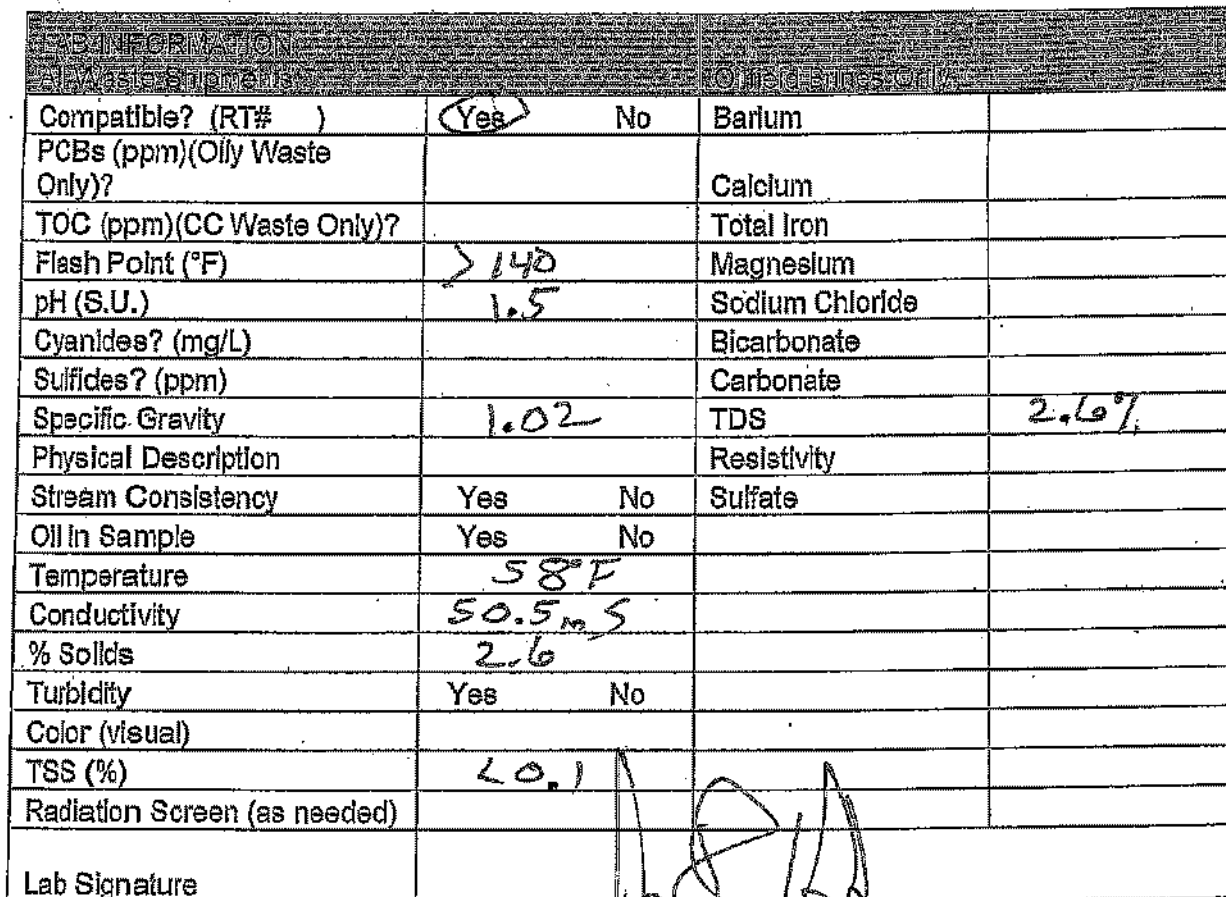 LAB INFORMATION
All Waste Shipments Oilfield Brines Only
Compatible? (RT# ) Yes No Barium
PCBs (ppm)(Oily Waste
Only)? Calcium
TOC (ppm)(CC Waste Only)? Total Iron
Flash Point (°F) >140 Magnesium
pH (S.U.) 1.5 Sodium Chloride
Cyanides? (mg/L) Bicarbonate
Sulfides? (ppm) Carbonate
Specific Gravity 1.02 TDS 2.6%
Physical Description Resistivity
Stream Consistency Yes No Sulfate
Oil in Sample Yes No
Temperature 58°F
Conductivity 50.5 mS
% Solids 2.6
Turbidity Yes No
Color (visual)
TSS (%) <0.1
Radiation Screen (as needed)
Lab Signature